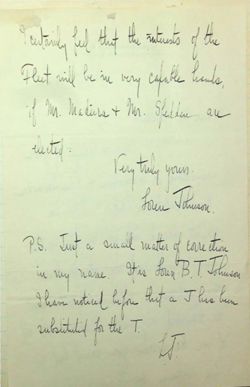 I certainly feel that the interests of the
Fleet will be in very capable hands,
if Mr. Madeira & Mr. Spedden are
elected.
Very truly yours.
Loren Johnson.
P.S. Just a small matter of correction
in my name. It is Loren B. T. Johnson
I have noticed before that a J has been
substituted for the T.
LJ